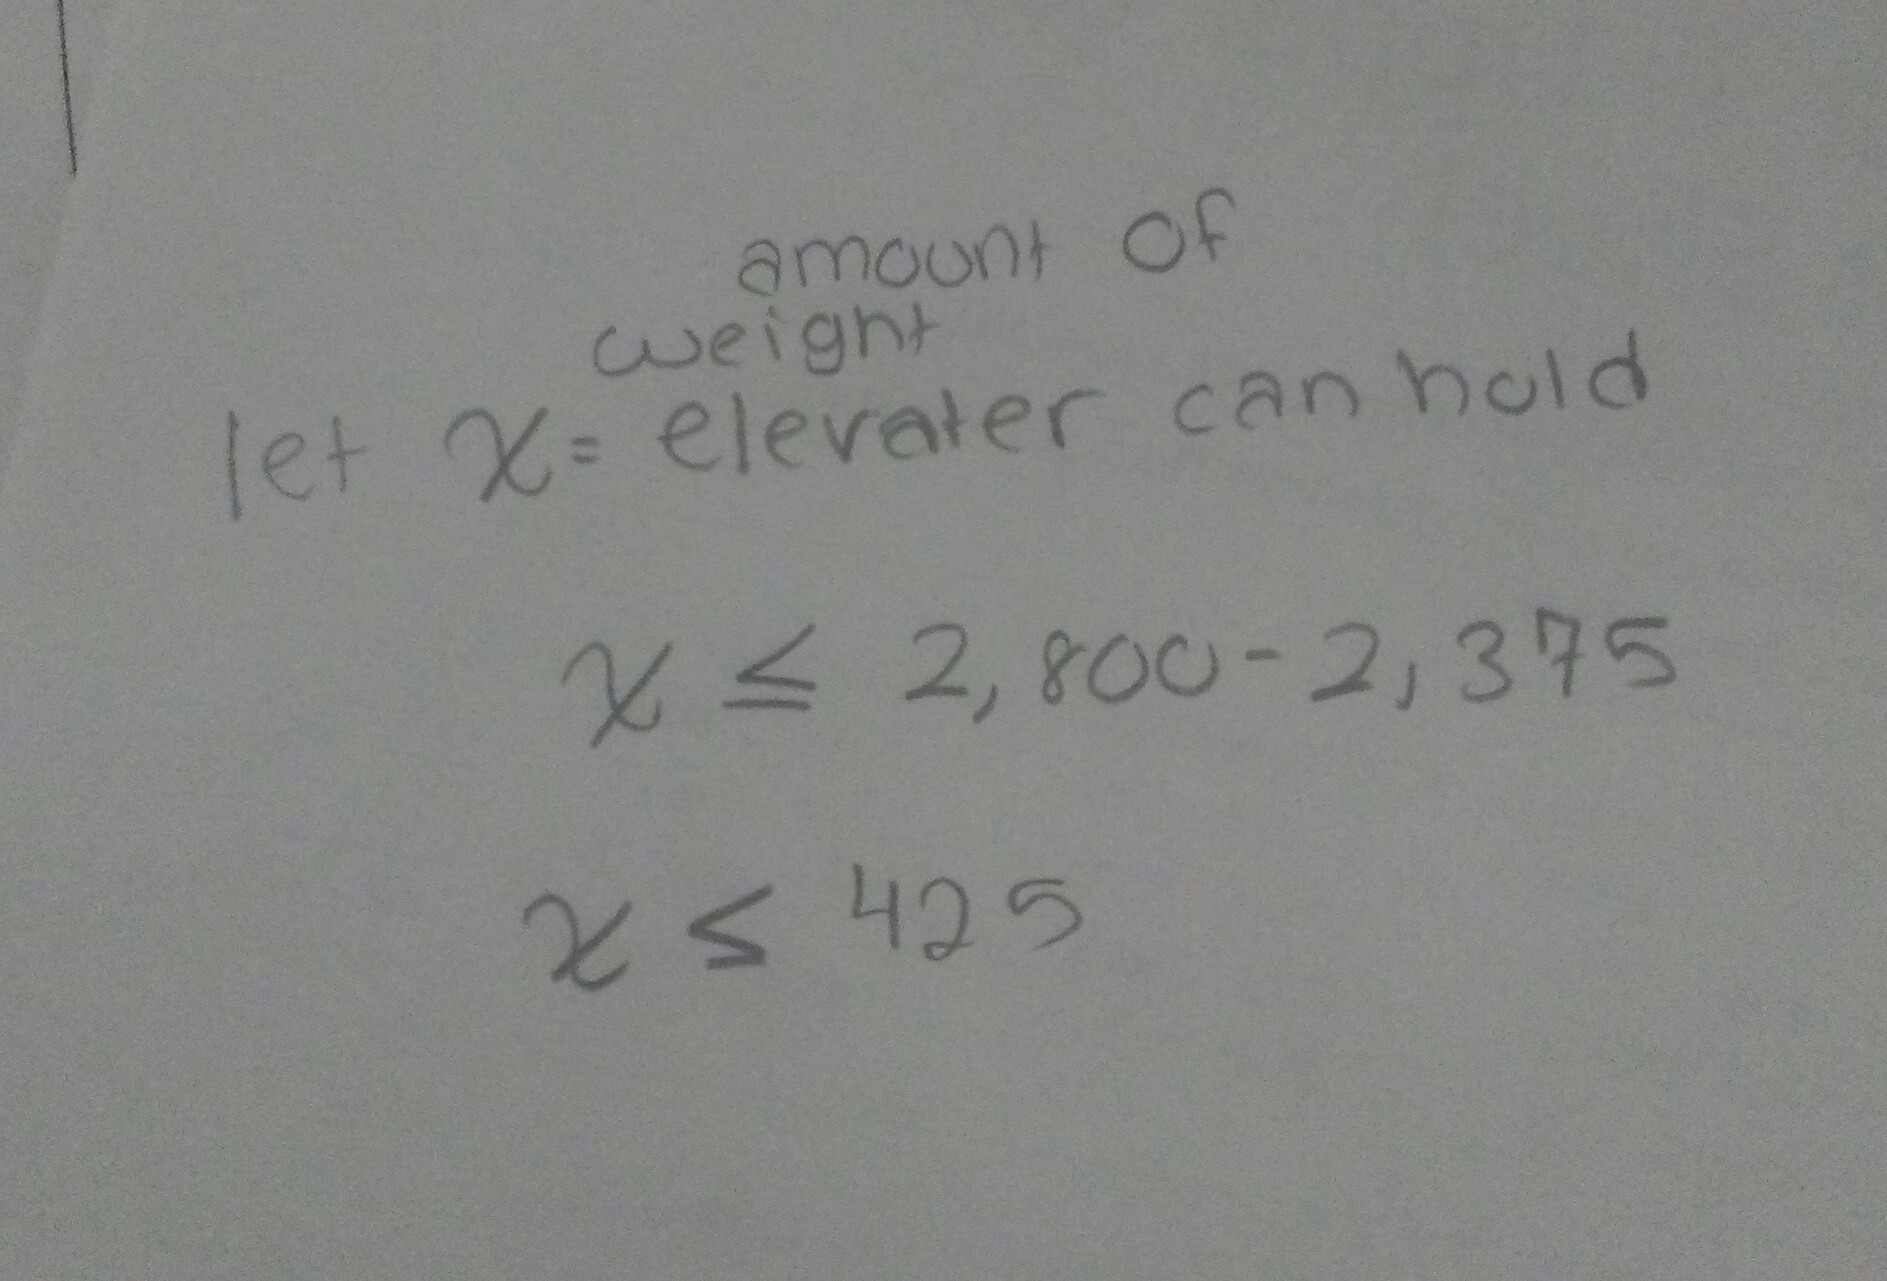 amount of
weight
let x= elevater can hold
x ≤ 2,800-2,375
x ≤ 425